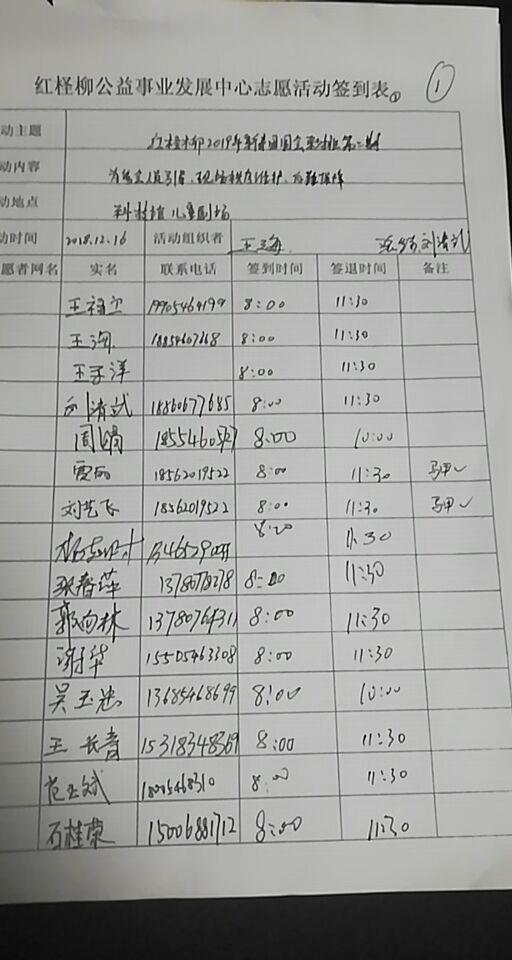 红柽柳公益事业发展中心志愿活动签到表① ①
动主题 红柽柳2019年新春团圆会彩排第二期
动内容 为演出人员引路、现场秩序维护、后勤保障
动地点 科技馆儿童剧场
动时间 2018.12.16 活动组织者 王海 刘清武
愿者网名 实名 联系电话 签到时间 签退时间 备注
19905464199 8:00 11:30
王海 18854607668 8:00 11:30
王子洋 8:00 11:30
刘清武 18860677685 8:00 11:30
周娟 8:00 10:00
贾丽 18562019522 8:00 11:30 马甲✓
刘艺飞 18562019522 8:00 11:30 马甲✓
8:20 11:30
张春萍 8:00 11:30
郭向林 13780764311 8:00 11:30
谢华 15505463308 8:00 11:30
吴玉忠 13685468699 8:00 10:00
王长青 15318348369 8:00 11:30
范玉斌 8:00 11:30
石桂荣 15006881712 8:00 11:30